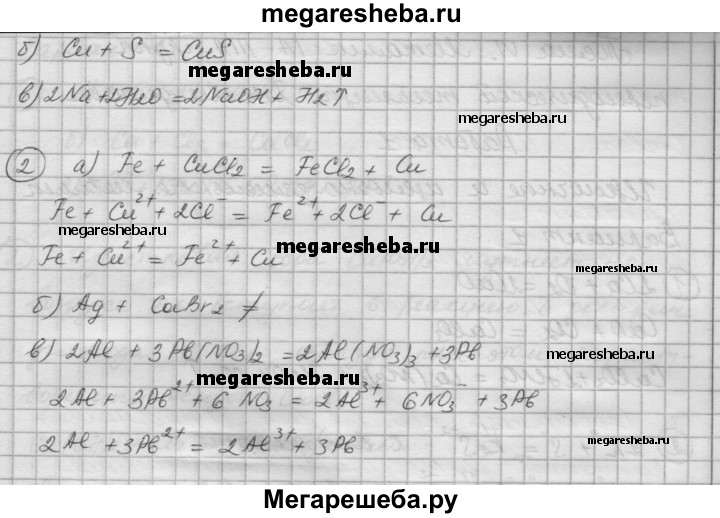 megaresheba.ru
б) Cu + S = CuS
megaresheba.ru
в) 2Na+2H2O = 2NaOH + H2↑
megaresheba.ru
2 а) Fe + CuCl2 = FeCl2 + Cu
Fe + Cu²⁺ + 2Cl⁻ = Fe²⁺ + 2Cl⁻ + Cu
megaresheba.ru
megaresheba.ru
Fe + Cu²⁺ = Fe²⁺ + Cu
megaresheba.ru
б) Ag + CaBr2 ≠
в) 2Al + 3Pb(NO3)2 = 2Al(NO3)3 + 3Pb
megaresheba.ru
megaresheba.ru
2Al + 3Pb²⁺ + 6NO3 = 2Al³⁺ + 6NO3⁻ + 3Pb
2Al + 3Pb²⁺ = 2Al³⁺ + 3Pb
megaresheba.ru
Мегарешеба.ру